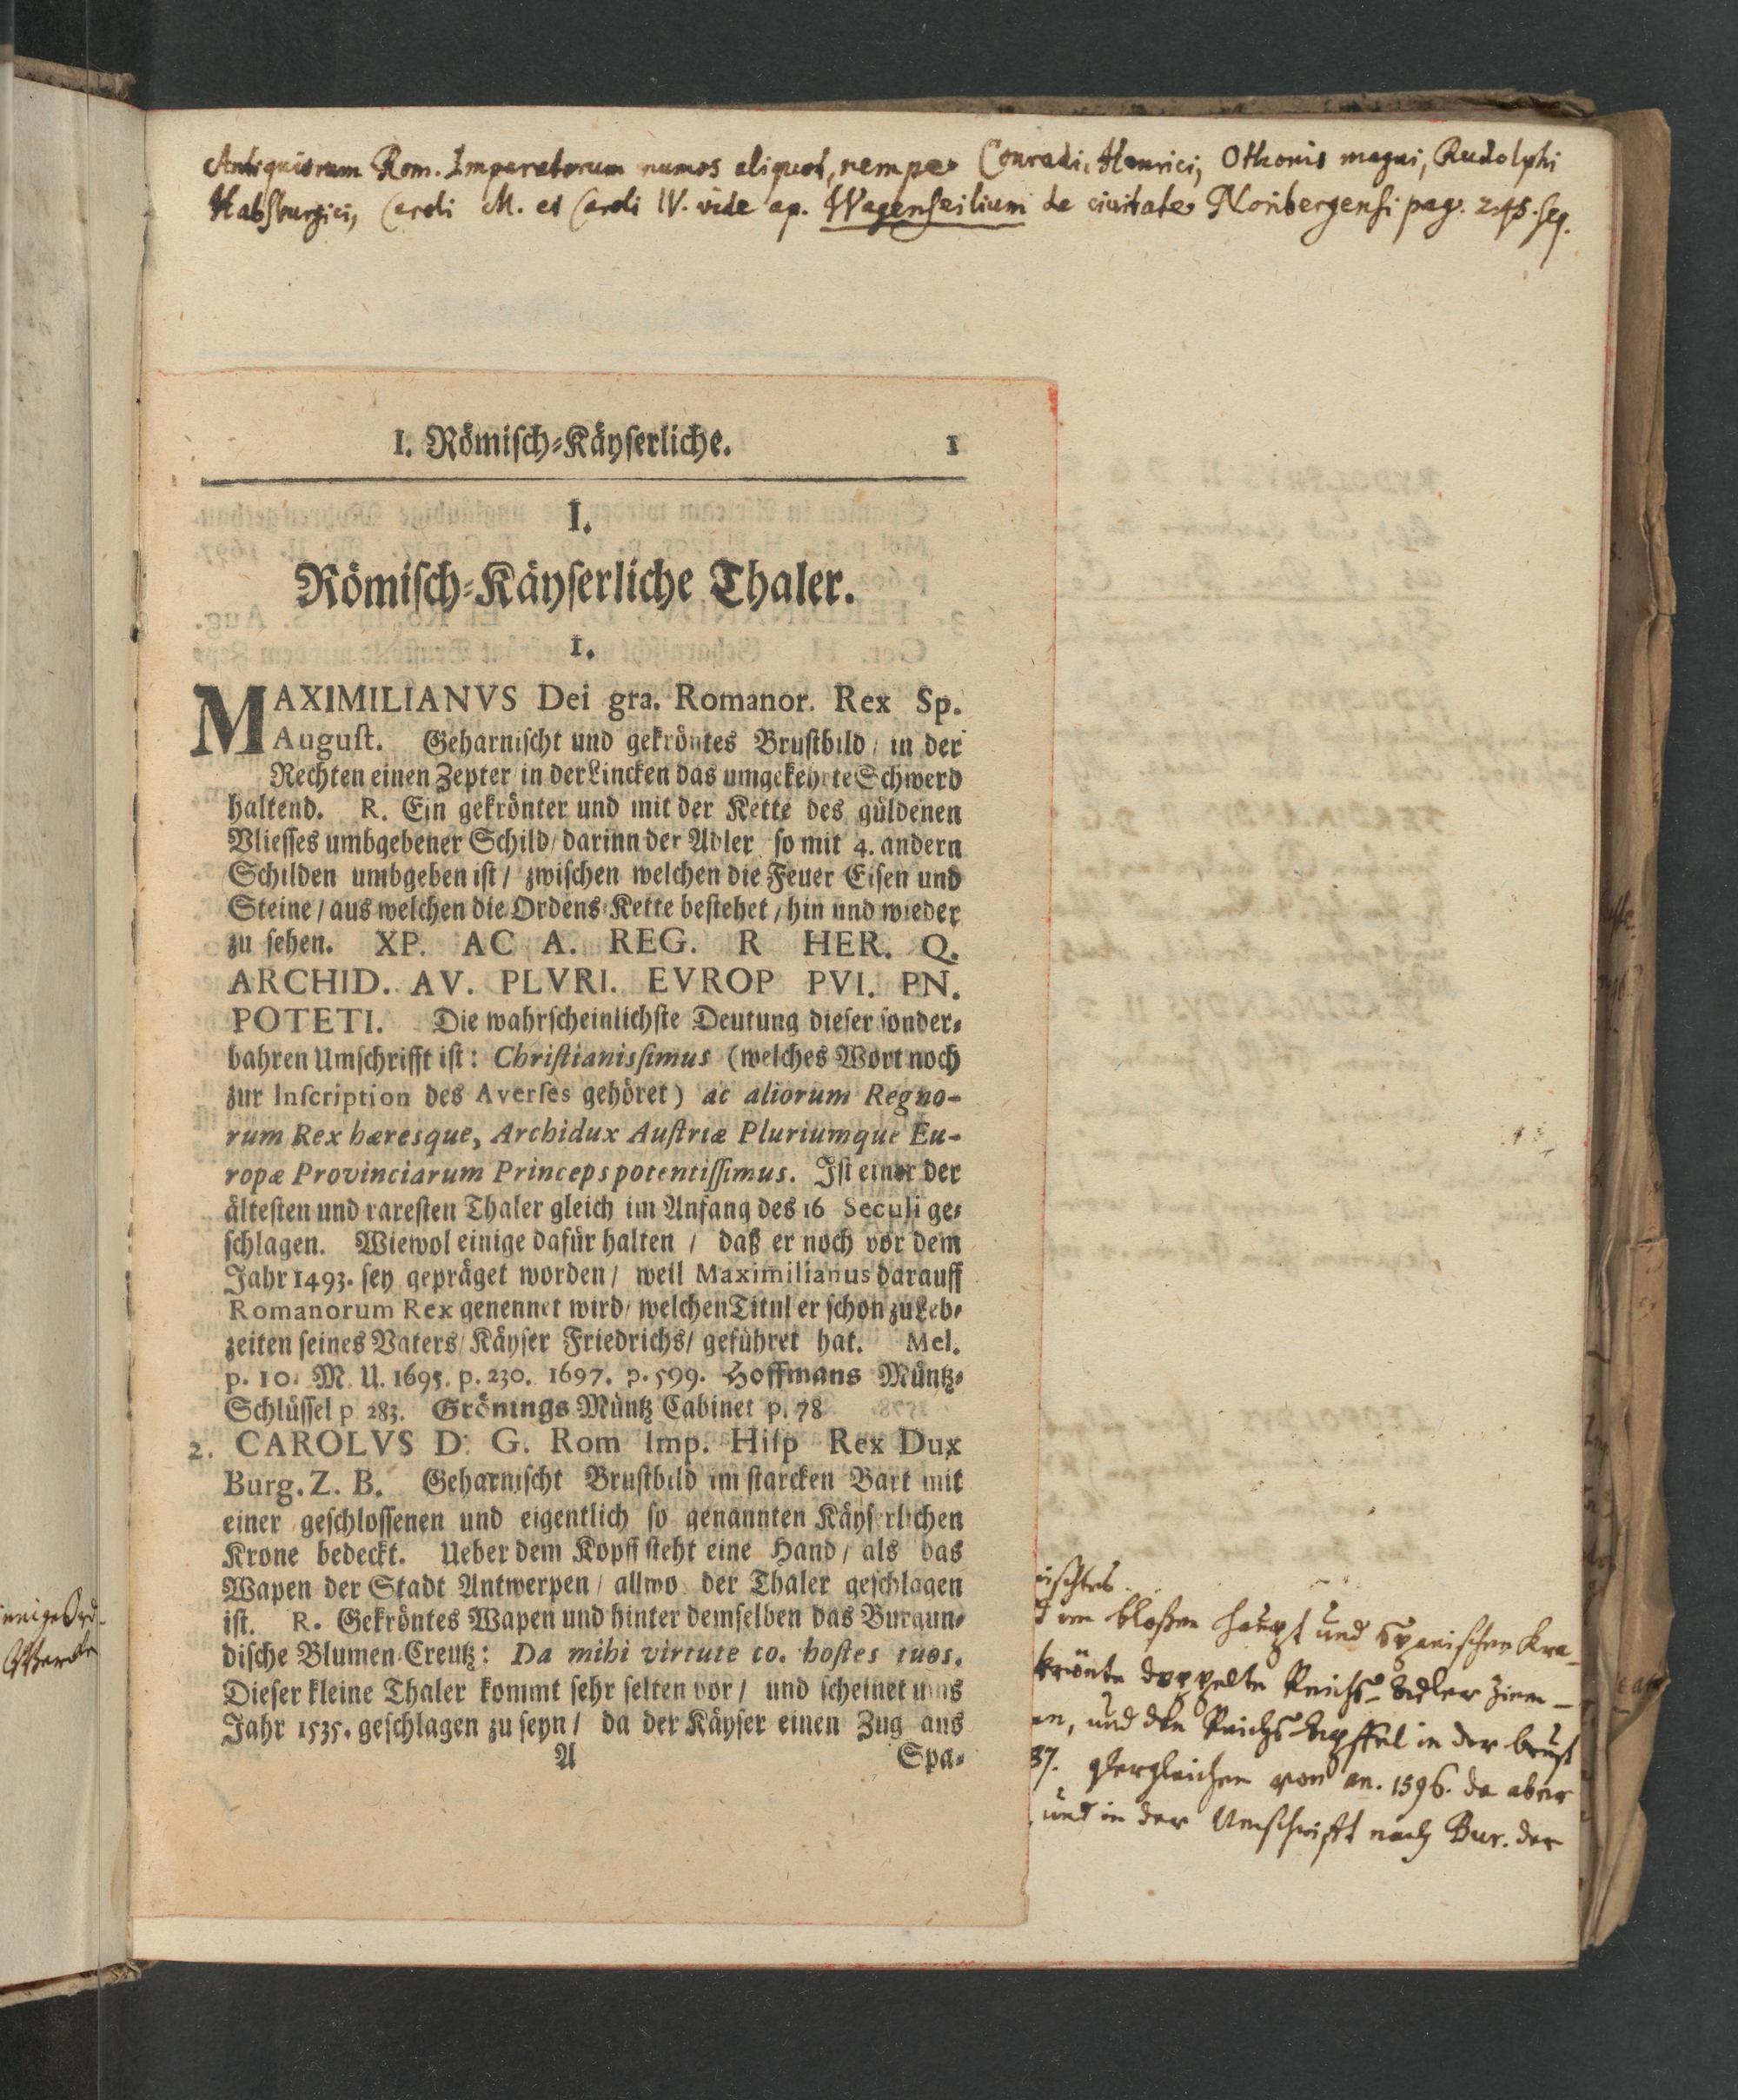 Antiquiorum Rom. Imperatorum numos aliquot, nempe Conradi, Henrici, Othonis magni, Rudolphi
Habsburgici, Caroli M. et Caroli IV. vide ap. Wagenseilium de civitate Noribergensi pag. 245. seq.
I. Römisch-Käyserliche. 1
I.
Römisch-Käyserliche Thaler.
1.
MAXIMILIANVS Dei gra. Romanor. Rex Sp.
August. Geharnischt und gekröntes Brustbild / in der
Rechten einen Zepter in der Lincken das umgekehrte Schwerd
haltend. R. Ein gekrönter und mit der Kette des güldenen
Vliesses umbgebener Schild / darinn der Adler so mit 4. andern
Schilden umbgeben ist / zwischen welchen die Feuer Eisen und
Steine / aus welchen die Ordens-Kette bestehet / hin und wieder
zu sehen. XP. AC A. REG. R HER. Q.
ARCHID. AV. PLVRI. EVROP PVI. PN.
POTETI. Die wahrscheinlichste Deutung dieser sonder-
bahren Umschrifft ist: Christianissimus (welches Wort noch
zur Inscription des Averses gehöret) ac aliorum Regno-
rum Rex hæresque, Archidux Austriæ Pluriumque Eu-
ropæ Provinciarum Princeps potentissimus. Ist einer der
ältesten und raresten Thaler gleich im Anfang des 16 Seculi ge-
schlagen. Wiewol einige dafür halten / daß er noch vor dem
Jahr 1493. sey gepräget worden / weil Maximilianus darauff
Romanorum Rex genennet wird / welchen Titul er schon zu Leb-
zeiten seines Vaters / Käyser Friedrichs / geführet hat. Mel.
p. 10. M. U. 1695. p. 230. 1697. p. 599. Hoffmans Müntz-
Schlüssel p 283. Grönings Müntz Cabinet p. 78
2. CAROLVS D. G. Rom Imp. Hisp Rex Dux
Burg. Z. B. Geharnischt Brustbild im starcken Bart mit
einer geschlossenen und eigentlich so genannten Käyserlichen
Krone bedeckt. Ueber dem Kopff steht eine Hand / als das
Wapen der Stadt Antwerpen / allwo der Thaler geschlagen
ist. R. Gekröntes Wapen und hinter demselben das Burgun-
dische Blumen-Creutz: Da mihi virtute co. hostes tuos.
Dieser kleine Thaler kommt sehr selten vor / und scheinet ums
Jahr 1535. geschlagen zu seyn / da der Käyser einen Zug aus
A Spa-
nischtes
im bloßen Haupt und Spanischen Kra-
krönte doppelte Reichs-Adler
en, und den Reichs-Apffel in der brust
87. Dergleichen von an. 1596. da aber
und in der Umschrifft nach Bur. der